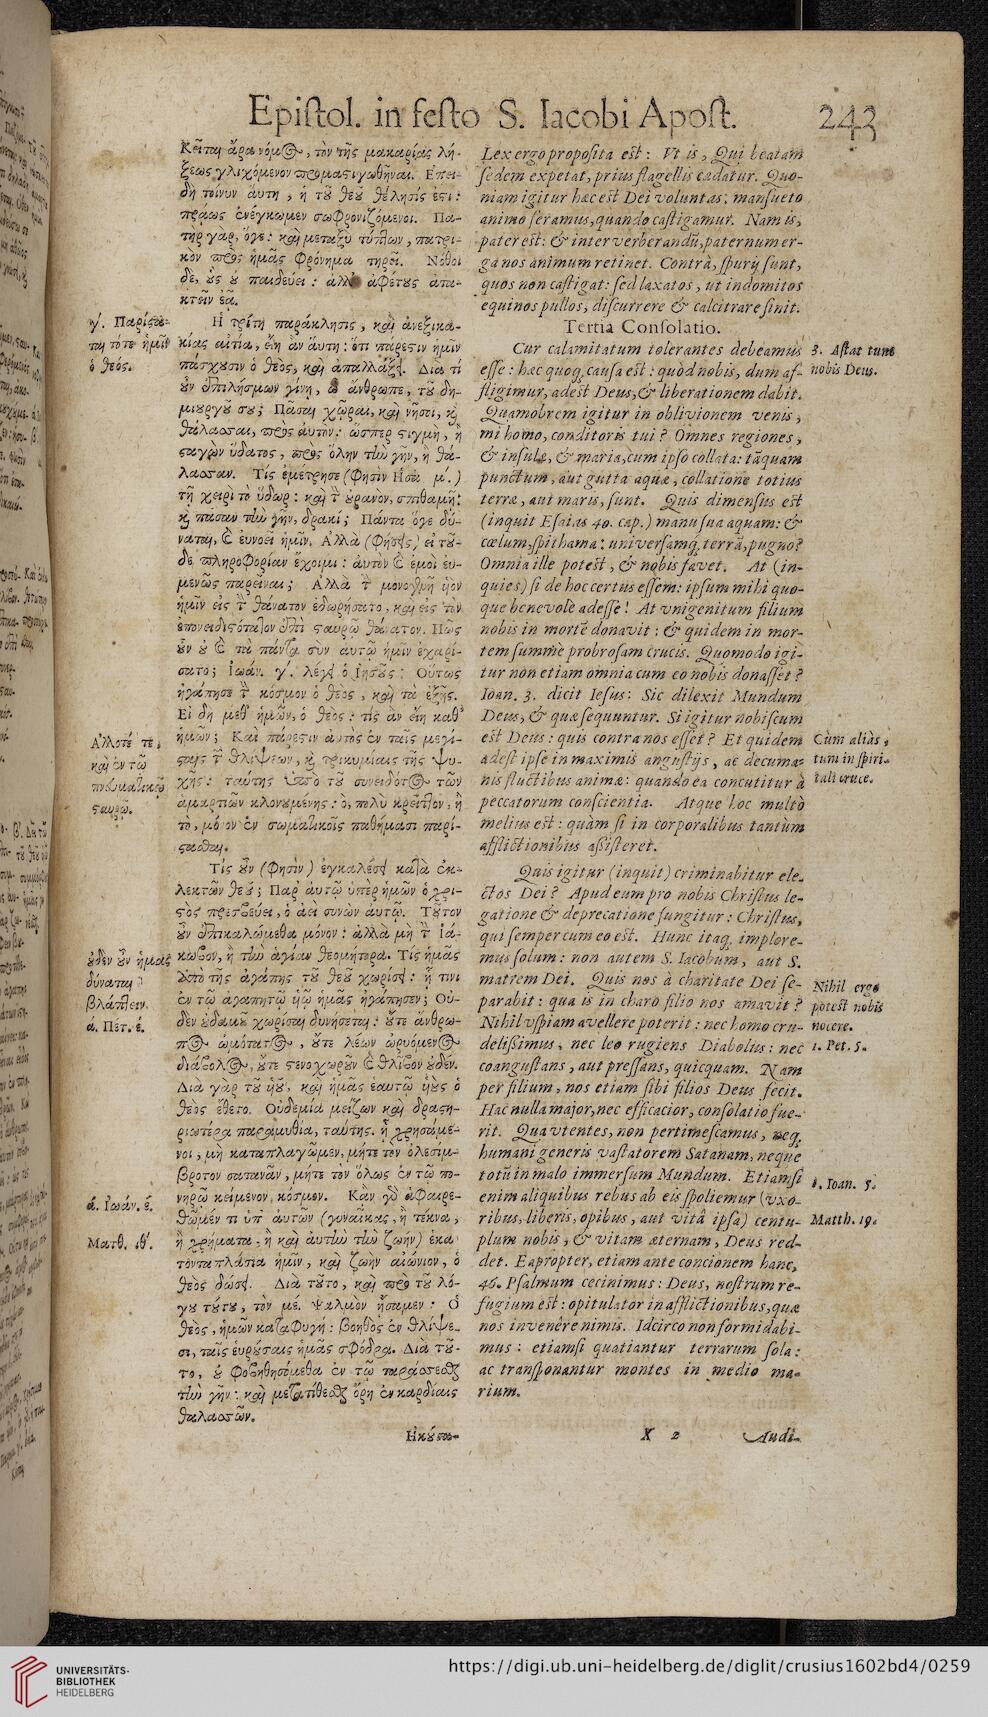 Epistol. in festo S. Iacobi Apost. 243
Κεῖται ἄρα νόμος, τὸν τῆς μακαρίας λή-
ξεως γλιχόμενον προμαστιγωθῆναι. Ἐπει-
δὴ τοίνυν αὕτη, ἡ τοῦ θεοῦ θέλησίς ἐστι:
πράως ἐνέγκωμεν σωφρονιζόμενοι. Πα-
τὴρ γὰρ, ὅγε: καὶ μεταξὺ τύπτων, πατρι-
κὸν πρὸς ἡμᾶς φρόνημα τηρεῖ. Νόθοι
δὲ, οὓς οὐ παιδεύει: ἀλλ' ἀφέτους ἀτα-
κτεῖν ἐᾷ.
γ΄. Παρίστα-
ται τότε ἡμῖν
ὁ θεός.
Ἡ τρίτη παράκλησις, καὶ ἀνεξικα-
κίας αἰτία, εἴη ἂν αὕτη: ὅτι πάρεστιν ἡμῖν
πάσχουσιν ὁ θεὸς, καὶ ἀπαλλάξει. Διὰ τί
οὖν ἐπιλήσμων γίνῃ, ὦ ἄνθρωπε, τοῦ δη-
μιουργοῦ σου; Πᾶσαι χῶραι, καὶ νῆσοι, καὶ
θάλασσαι, πρὸς αὐτὸν: ὥσπερ στιγμὴ, ἢ
σταγὼν ὕδατος, πρὸς ὅλην τὴν γῆν, ἢ θά-
λασσαν. Τίς ἐμέτρησε (φησὶν Ἡσα. μ΄.)
τῇ χειρὶ τὸ ὕδωρ: καὶ τὸν οὐρανὸν, σπιθαμῇ:
καὶ πᾶσαν τὴν γῆν, δρακί; Πάντα ὅγε δύ-
ναται, καὶ εὐνοεῖ ἡμῖν. Ἀλλὰ (φήσεις) εἰ τοῦ-
δε πληροφορίαν ἔχοιμι: αὐτὸν καὶ ἐμοὶ εὐ-
μενῶς παρεῖναι; Ἀλλὰ τὸν μονογενῆ υἱὸν
ἡμῖν εἰς τὸν θάνατον ἐδωρήσατο, καὶ εἰς τὸν
ἐπονειδιστότατον ἐπὶ σταυρῷ θάνατον. Πῶς
οὖν οὐ καὶ τὰ πάντα σὺν αὐτῷ ἡμῖν ἐχαρί-
σατο; Ἰωάν. γ΄. λέγει ὁ Ἰησοῦς: Οὕτως
ἠγάπησε τὸν κόσμον ὁ θεὸς, καὶ τὰ ἑξῆς.
Εἰ δὴ μεθ' ἡμῶν, ὁ θεὸς: τίς ἂν εἴη καθ'
ἡμῶν; Καὶ πάρεστιν αὐτὸς ἐν ταῖς μεγί-
σταις τῶν θλίψεων, καὶ τρικυμίαις τῆς ψυ-
χῆς: ταύτης ὑπὸ τοῦ συνειδότος τῶν
ἁμαρτιῶν κλονουμένης: ὃ, πολὺ κρεῖττον, ἢ
τὸ, μόνον ἐν σωματικοῖς παθήμασι παρί-
στασθαι.
Ἄλλοτέ τε,
καὶ ἐν τῷ
πνευματικῷ
σταυρῷ.
Τίς οὖν (φησὶν) ἐγκαλέσει κατὰ ἐκ-
λεκτῶν θεοῦ; Παρ' αὐτῷ ὑπὲρ ἡμῶν ὁ χρι-
στὸς πρεσβεύει, ὁ ἀεὶ συνὼν αὐτῷ. Τοῦτον
οὖν ἐπικαλώμεθα μόνον: ἀλλὰ μὴ τὸν Ἰά-
κωβον, ἢ τὴν ἁγίαν θεομήτορα. Τίς ἡμᾶς
ἀπὸ τῆς ἀγάπης τοῦ θεοῦ χωρίσει: ᾗ τινι
ἐν τῷ ἀγαπητῷ υἱῷ ἡμᾶς ἠγάπησεν; Οὐ-
δὲν οὐδαμοῦ χωρίσαι δυνήσεται: οὔτε ἄνθρω-
πος ὠμότατος, οὔτε λέων ὠρυόμενος
διάβολος, οὔτε στενοχωροῦν καὶ θλῖβον οὐδέν.
Διὰ γὰρ τοῦ υἱοῦ, καὶ ἡμᾶς ἑαυτῷ υἱοὺς ὁ
θεὸς ἔθετο. Οὐδεμία μείζων καὶ δραστη-
ριωτέρα παραμυθία, ταύτης. ᾗ χρησάμε-
νοι, μὴ καταπλαγῶμεν, μήτε τὸν ὀλεσίμ-
βροτον σατανᾶν, μήτε τὸν ὅλως ἐν τῷ πο-
νηρῷ κείμενον, κόσμον. Κἂν γὰρ ἀφαιρε-
θῶμέν τι ὑπ' αὐτῶν (γυναῖκας, ἢ τέκνα,
ἢ χρήματα, ἢ καὶ αὐτὴν τὴν ζωήν) ἑκα-
τονταπλάσια ἡμῖν, καὶ ζωὴν αἰώνιον, ὁ
θεὸς δώσει. Διὰ τοῦτο, καὶ πρὸ τοῦ λό-
γου τούτου, τὸν με΄. ψαλμὸν ᾔσαμεν: Ὁ
θεὸς, ἡμῶν καταφυγή: βοηθὸς ἐν θλίψε-
σι, ταῖς εὑρούσαις ἡμᾶς σφόδρα. Διὰ τοῦ-
το, οὐ φοβηθησόμεθα ἐν τῷ ταράσσεσθαι
τὴν γῆν: καὶ μετατίθεσθαι ὄρη ἐν καρδίαις
θαλασσῶν.
οὐδὲν οὖν ἡμᾶς
δύναται
βλάπτειν.
ά. Πέτ. έ.
ά. Ἰωάν. έ.
Ματθ. ιθ΄.
Lex ergo proposita est: Vt is, Qui beatam
sedem expetat, prius flagellis cædatur. Quo-
niam igitur hæc est Dei voluntas: mansueto
animo feramus, quando castigamur. Nam is,
pater est: & inter verberandũ, paternum er-
ga nos animum retinet. Contrà, spurij sunt,
quos non castigat: sed laxatos, ut indomitos
equinos pullos, discurrere & calcitrare sinit.
Tertia Consolatio.
Cur calamitatum tolerantes debeamus
esse: hæc quoq; causa est: quòd nobis, dum af-
fligimur, adest Deus, & liberationem dabit.
Quamobrem igitur in oblivionem venis,
mi homo, conditoris tui? Omnes regiones,
& insulæ, & maria, cum ipso collata: tãquam
punctum, aut gutta aquæ, collatione totius
terræ, aut maris, sunt. Quis dimensus est
(inquit Esaias 40. cap.) manu sua aquam: &
cœlum, spithama: universamq; terrã, pugno?
Omnia ille potest, & nobis favet. At (in-
quies) si de hoc certus essem: ipsum mihi quo-
que benevole adesse! At vnigenitum filium
nobis in mortẽ donavit: & quidem in mor-
tem summè probrosam crucis. Quomodo igi-
tur non etiam omnia cum eo nobis donasset?
Ioan. 3. dicit Iesus: Sic dilexit Mundum
Deus, & quæ sequuntur. Si igitur nobiscum
est Deus: quis contra nos esset? Et quidem
adest ipse in maximis angustijs, ac decuma-
nis fluctibus animæ: quando ea concutitur à
peccatorum conscientia. Atque hoc multò
melius est: quàm si in corporalibus tantùm
afflictionibus assisteret.
3. Astat tunc
nobis Deus.
Cùm aliàs,
tum in spiri-
tali cruce.
Quis igitur (inquit) criminabitur ele-
ctos Dei? Apud eum pro nobis Christus le-
gatione & deprecatione fungitur: Christus,
qui semper cum eo est. Hunc itaq; implore-
mus solum: non autem S. Iacobum, aut S.
matrem Dei. Quis nos à charitate Dei se-
parabit: qua is in charo filio nos amavit?
Nihil vspiam avellere poterit: nec homo cru-
delissimus, nec leo rugiens Diabolus: nec
coangustans, aut pressans, quicquam. Nam
per filium, nos etiam sibi filios Deus fecit.
Hac nulla major, nec efficacior, consolatio fue-
rit. Qua vtentes, non pertimescamus, neq;
humani generis vastatorem Satanam, neque
totũ in malo immersum Mundum. Etiamsi
enim aliquibus rebus ab eis spoliemur (vxo-
ribus, liberis, opibus, aut vitâ ipsa) centu-
plum nobis, & vitam æternam, Deus red-
det. Eapropter, etiam ante concionem hanc,
46. Psalmum cecinimus: Deus, nostrum re-
fugium est: opitulator in afflictionibus, quæ
nos invenêre nimis. Idcirco non formidabi-
mus: etiamsi quatiantur terrarum sola:
ac transponantur montes in medio ma-
rium.
Nihil ergo
potest nobis
nocere.
1. Pet. 5.
1. Ioan. 5.
Matth. 19.
Ἠκούσα-
X 2
Audi-
UNIVERSITÄTS-
BIBLIOTHEK
HEIDELBERG
https://digi.ub.uni-heidelberg.de/diglit/crusius1602bd4/0259